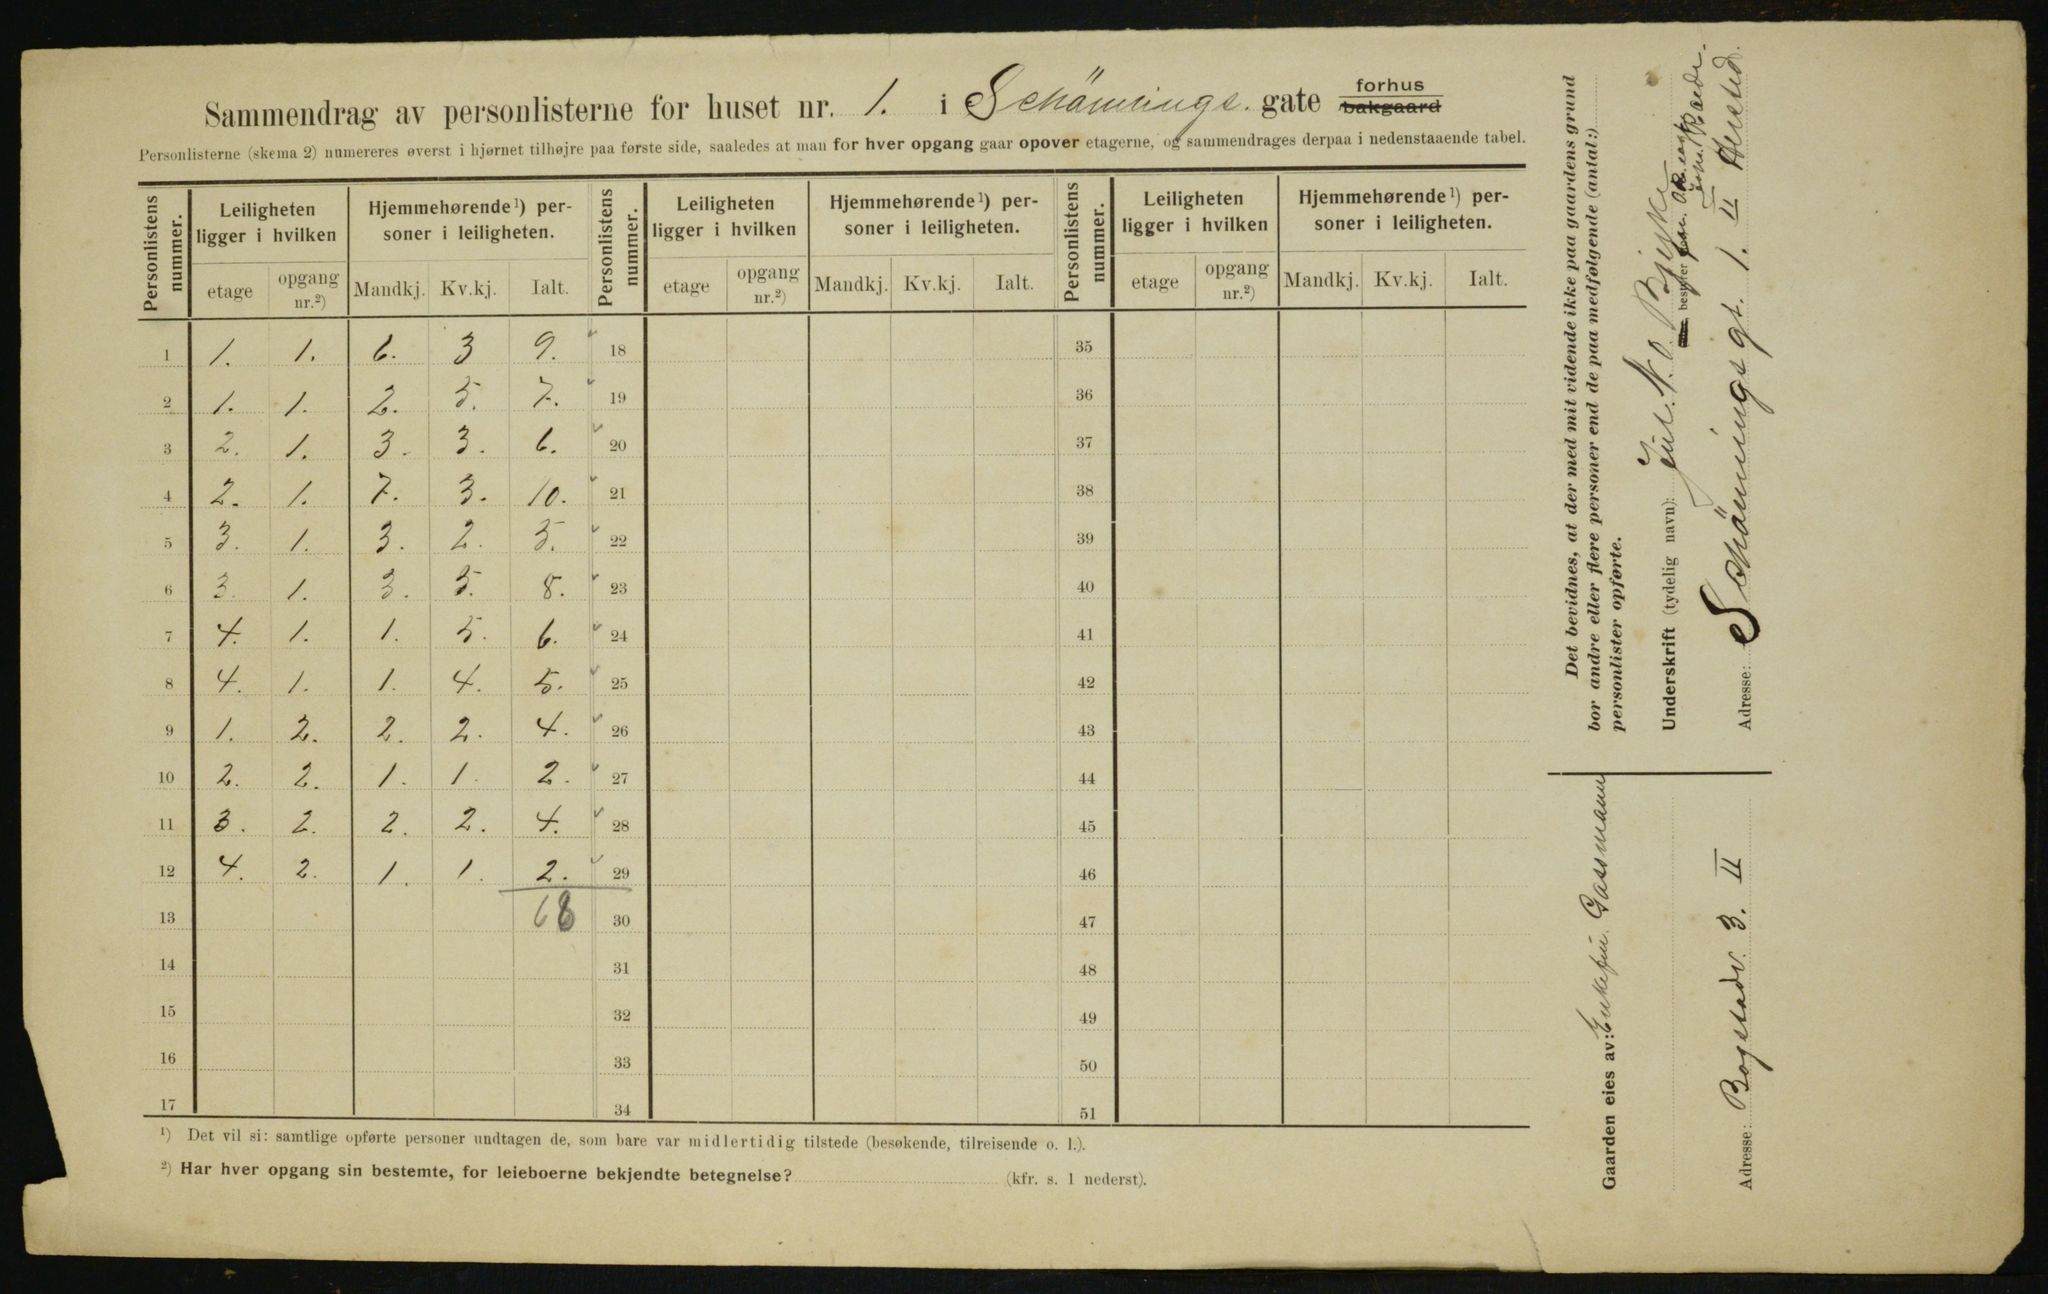 Sammendrag av personlisterne for huset nr. 1. i Schönings. gate forhus bakgaard
Personlisterne (skema 2) numereres øverst i hjørnet tilhøjre paa første side, saaledes at man for hver opgang gaar opover etagerne, og sammendrages derpaa i nedenstaaende tabel.
Personlistens nummer. Leiligheten ligger i hvilken Hjemmehørende¹) personer i leiligheten. Personlistens nummer. Leiligheten ligger i hvilken Hjemmehørende¹) personer i leiligheten. Personlistens nummer. Leiligheten ligger i hvilken Hjemmehørende¹) personer i leiligheten.
etage opgang nr.²) Mandkj. Kv.kj. Ialt. etage opgang nr.²) Mandkj. Kv.kj. Ialt. etage opgang nr.²) Mandkj. Kv.kj. Ialt.
1 1. 1. 6. 3 9. 18 35
2 1. 1. 2. 5. 7. 19 36
3 2. 1. 3. 3. 6. 20 37
4 2. 1. 7. 3. 10. 21 38
5 3. 1. 3. 2. 5. 22 39
6 3. 1. 3. 5. 8. 23 40
7 4. 1. 1. 5. 6. 24 41
8 4. 1. 1. 4. 5. 25 42
9 1. 2. 2. 2. 4. 26 43
10 2. 2. 1. 1. 2. 27 44
11 3. 2. 2. 2. 4. 28 45
12 4. 2. 1. 1. 2. 29 46
13 68 30 47
14 31 48
15 32 49
16 33 50
17 34 51
¹) Det vil si: samtlige opførte personer undtagen de, som bare var midlertidig tilstede (besøkende, tilreisende o. l.).
²) Har hver opgang sin bestemte, for leieboerne bekjendte betegnelse? (kfr. s. 1 nederst).
Det bevidnes, at der med mit vidende ikke paa gaardens grund
bor andre eller flere personer end de paa medfølgende (antal:)
personlister opførte.
Underskrift (tydelig navn): Jul. N. O. Bjerke
Adresse: Schönings gt. 1. II
Gaarden eies av: Enkefru Gassmann
Adresse: Bogstadv. 3. II